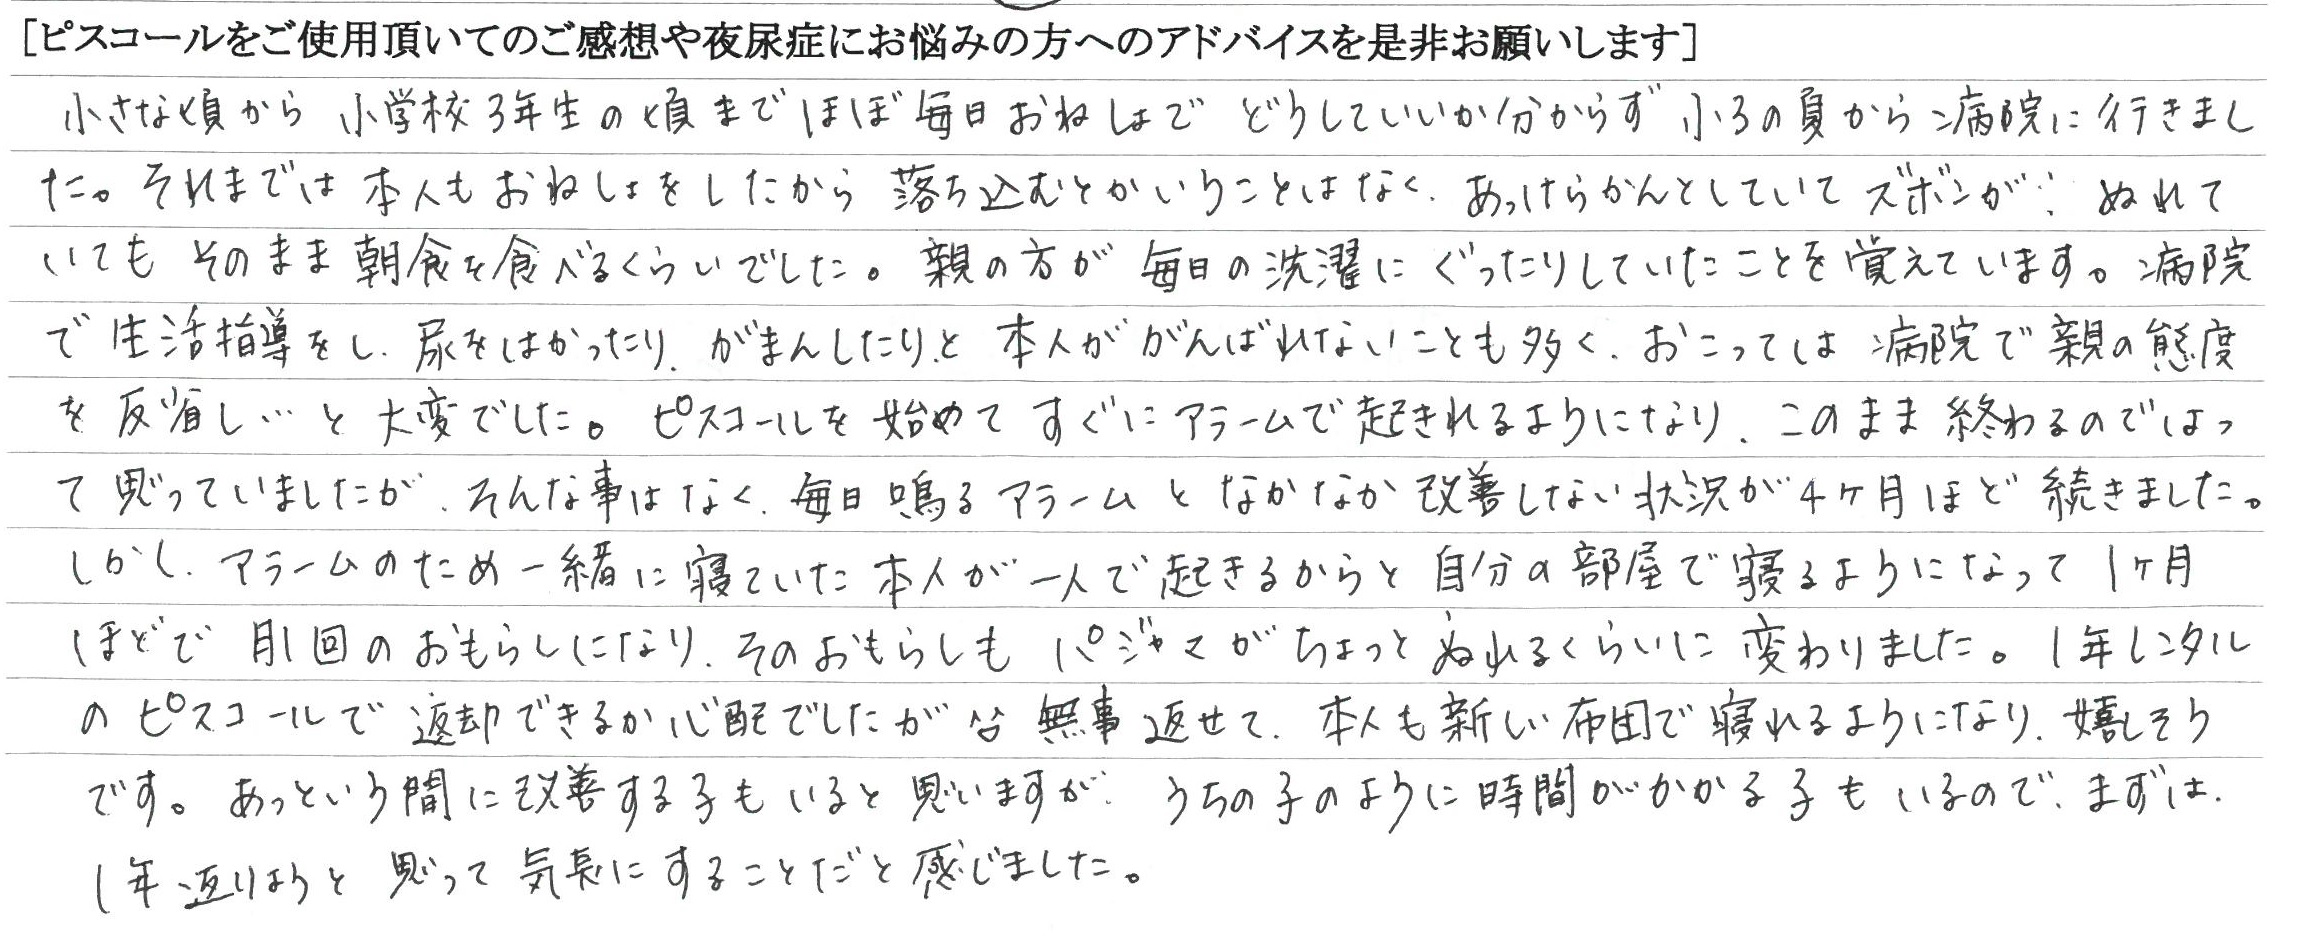 [ピスコールをご使用頂いてのご感想や夜尿症にお悩みの方へのアドバイスを是非お願いします]
小さな頃から 小学校3年生の頃までほぼ毎日おねしょで どうしていいか分からず 小3の夏から病院に行きまし
た。それまでは本人もおねしょをしたから 落ち込むとかいうことはなく、あっけらかんとしていてズボンが ぬれて
いてもそのまま朝食を食べるくらいでした。親の方が毎日の洗濯にぐったりしていたことを覚えています。病院
で生活指導をし、尿をはかったり、がまんしたり、と 本人ががんばれないことも多く、おこっては病院で親の態度
を反省し…と大変でした。ピスコールを始めてすぐにアラームで起きれるようになり、このまま終わるのではっ
て思っていましたが、そんな事はなく、毎日鳴るアラームとなかなか改善しない状況が4ヶ月ほど続きました。
しかし、アラームのため一緒に寝ていた本人が一人で起きるからと自分の部屋で寝るようになって1ヶ月
ほどで月1回のおもらしになり、そのおもらしもパジャマがちょっとぬれるくらいに変わりました。1年レンタル
のピスコールで返却できるか心配でしたが 無事返せて、本人も新しい布団で寝れるようになり、嬉しそう
です。あっという間に改善する子もいると思いますが、うちの子のように時間がかかる子もいるので、まずは、
1年返りようと思って気長にすることだと感じました。